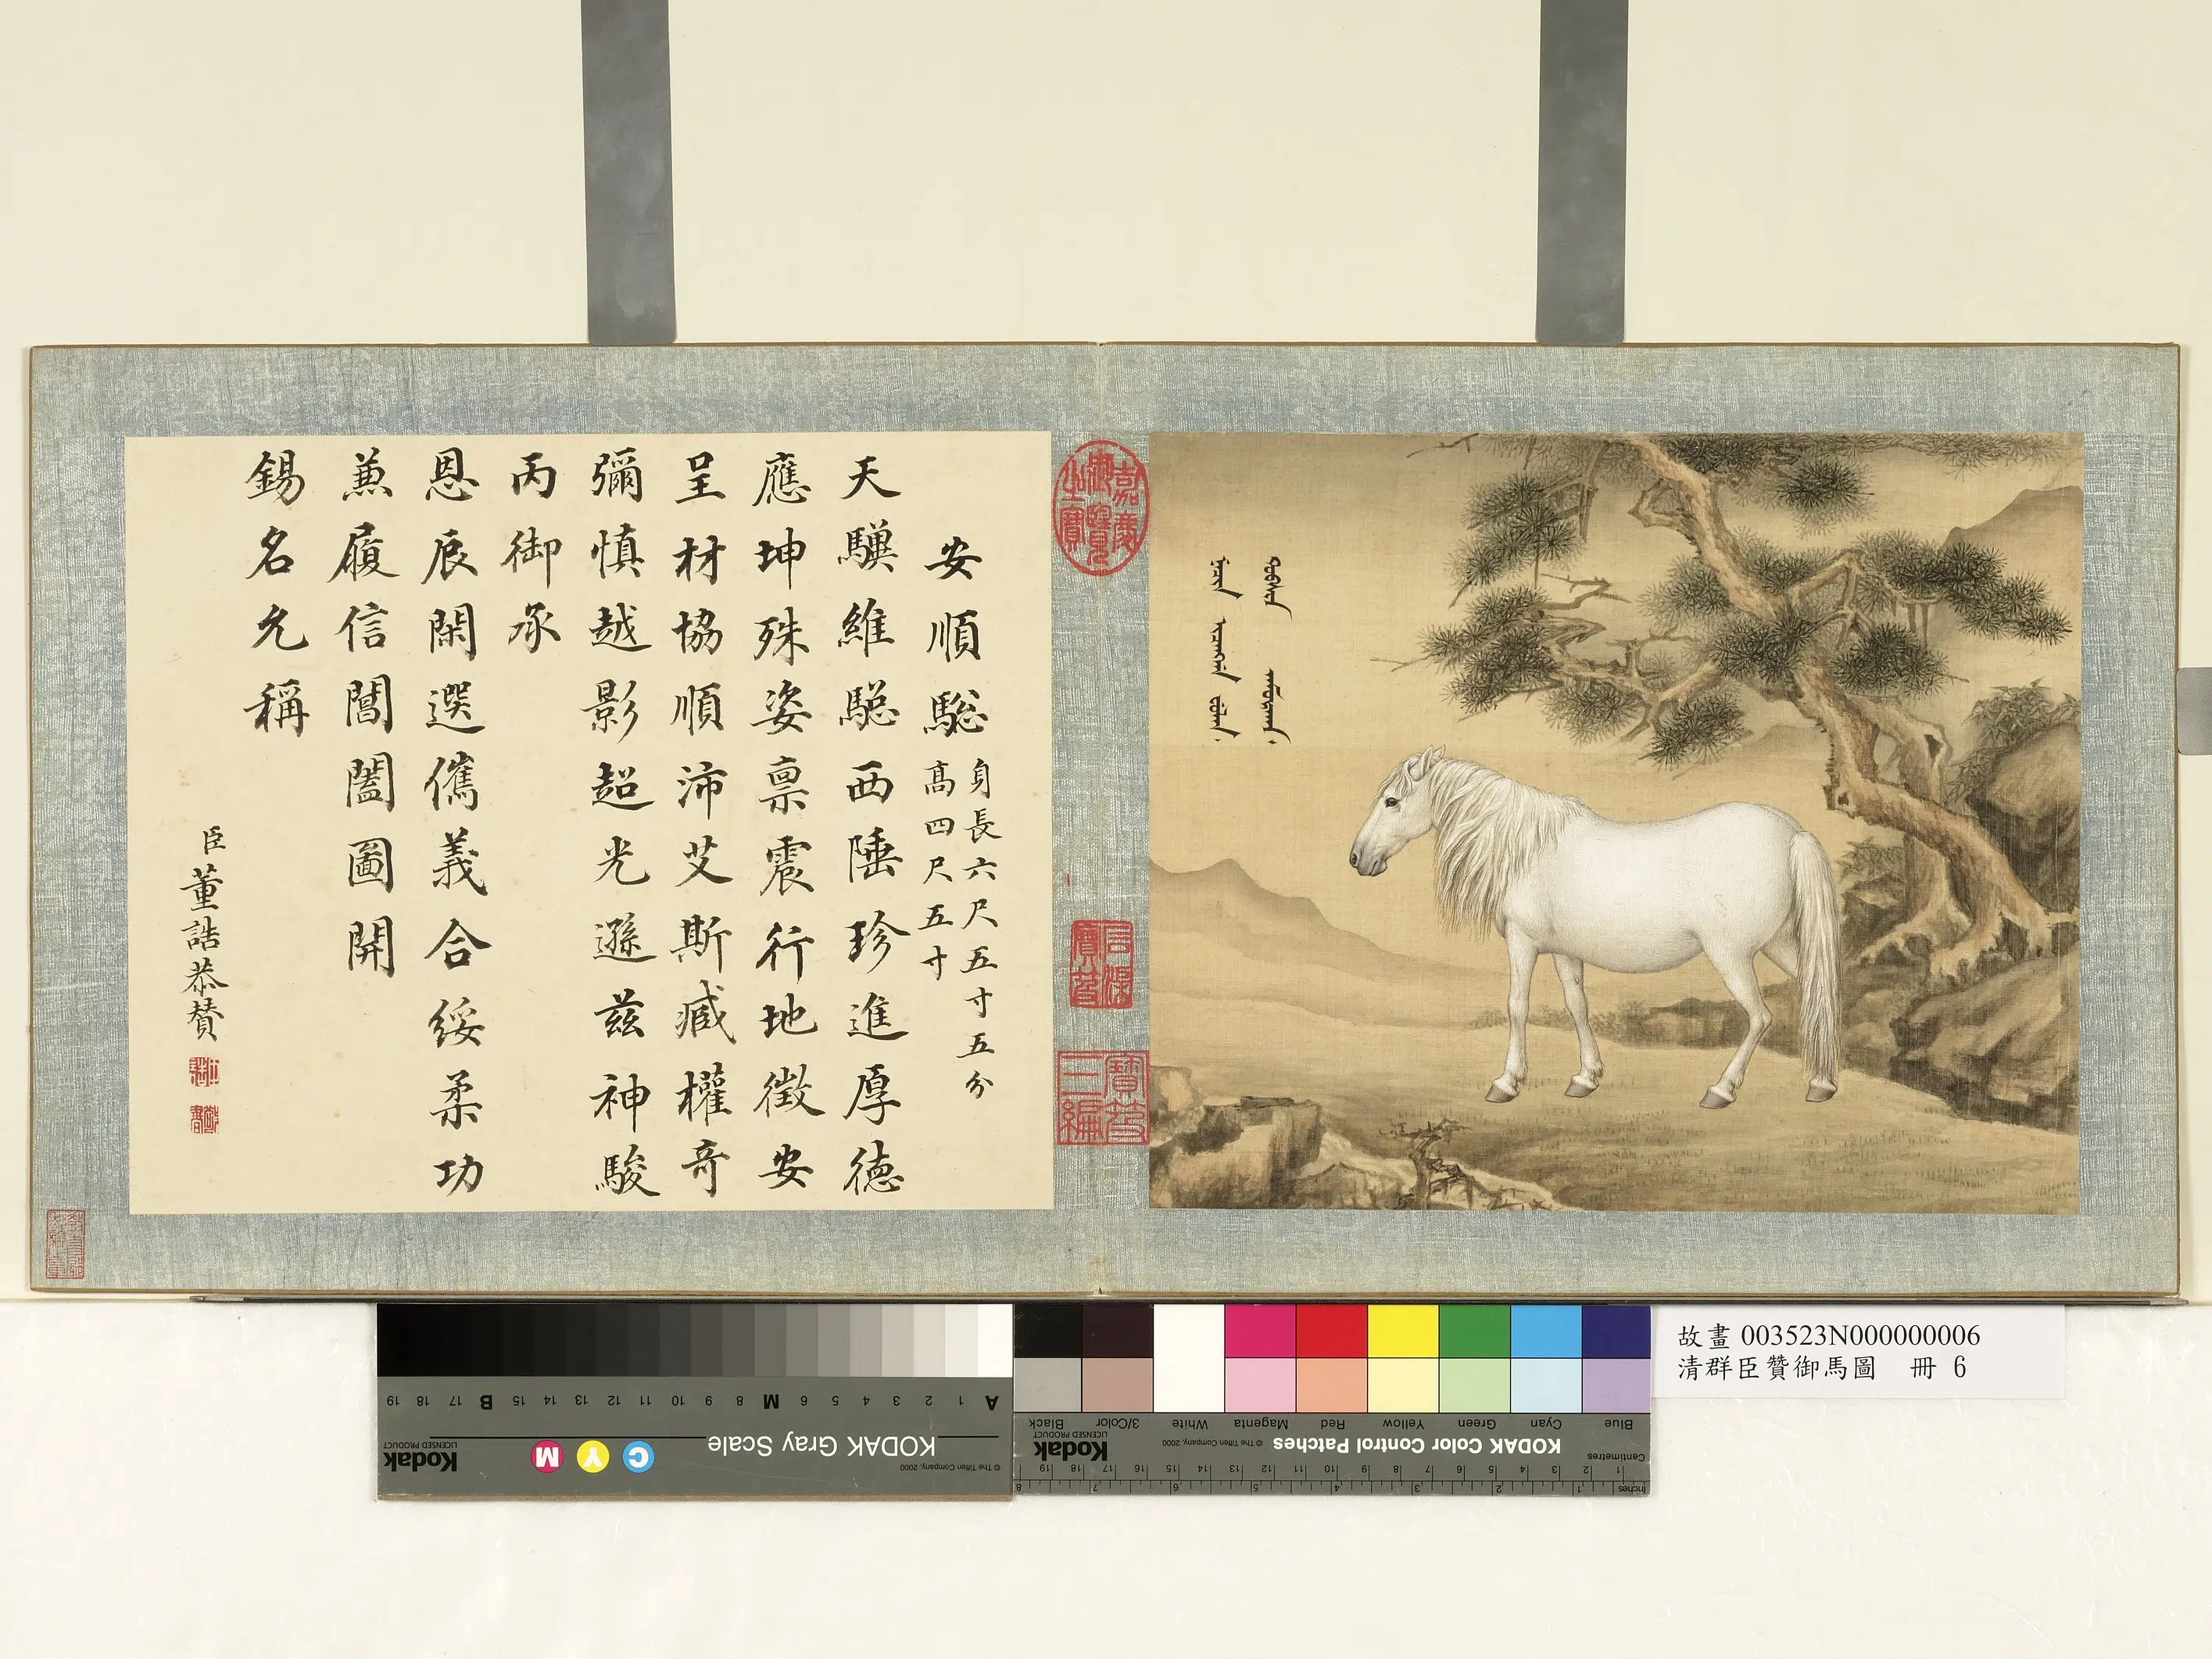 安順驄
身長六尺五寸五分
高四尺五寸
天驥維驄西陲珍進厚德
應坤殊姿稟震行地徵安
呈材協順沛艾斯臧權奇
彌慎越影超光遜茲神駿
丙御承
恩辰閑選儁義合綏柔功
兼履信閶闔圖開
錫名允稱
臣董誥恭贊
嘉慶御覽之寶
石渠寶笈
寶笈三編
故畫 003523N000000006
清群臣贊御馬圖 冊 6
Kodak
LICENSED PRODUCT
KODAK Gray Scale
© The Tiffen Company, 2000
C Y M
A 1 2 3 4 5 6 M 8 9 10 11 12 13 14 15 B 17 18 19
Kodak
LICENSED PRODUCT
KODAK Color Control Patches
© The Tiffen Company, 2000
Blue Cyan Green Yellow Red Magenta White 3/Color Black
Centimetres
Inches